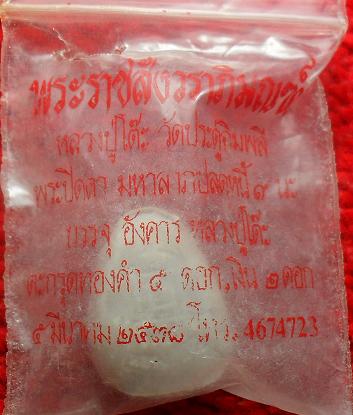 พระราชสังวราภิมณฑ์
หลวงปู่โต๊ะ วัดประดู่ฉิมพลี
พระปิดตา มหาลาภปลดหนี้
บรรจุ อังคาร หลวงปู่โต๊ะ
ตะกรุดทองคำ ๕ ดอก,เงิน ๒ ดอก
๕ มีนาคม ๒๕๓๘ โทร. 4674723